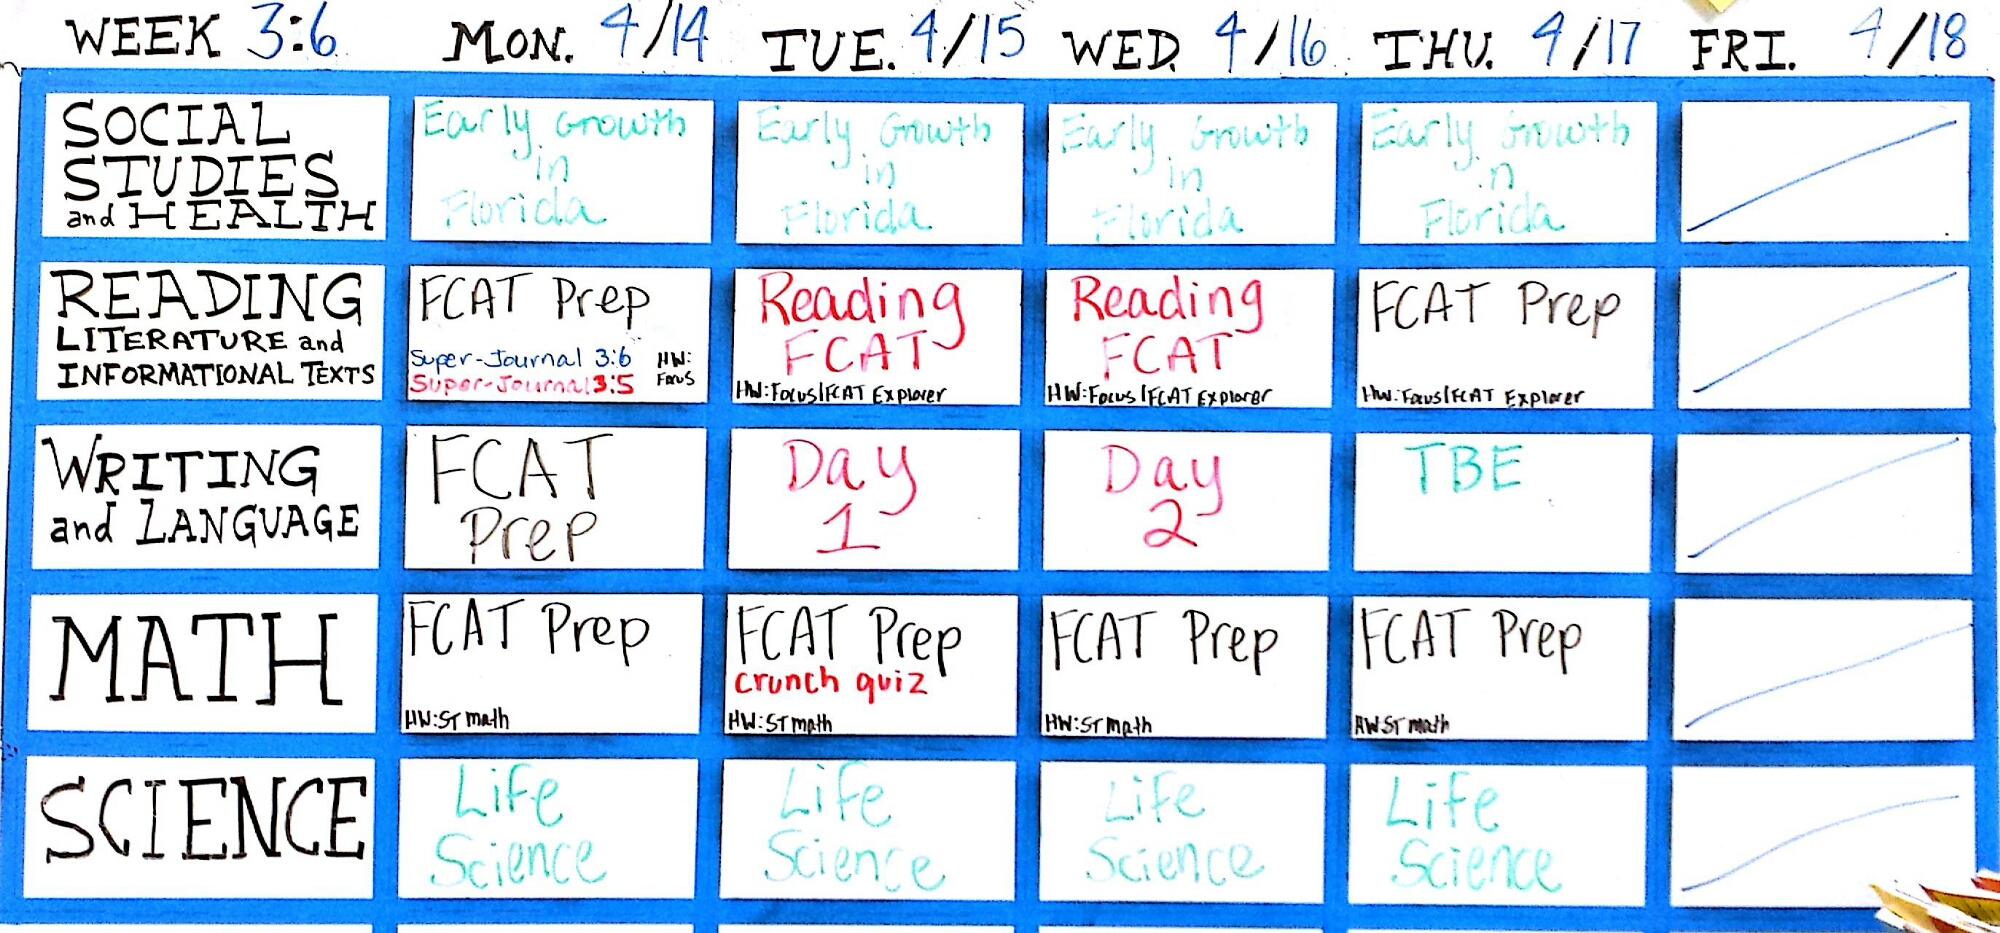 WEEK 3:6 MON. 4/14 TUE. 4/15 WED. 4/16 THU. 4/17 FRI. 4/18
SOCIAL
STUDIES
and HEALTH
Early Growth
in
Florida
Early Growth
in
Florida
Early Growth
in
Florida
Early Growth
in
Florida
READING
LITERATURE and
INFORMATIONAL TEXTS
FCAT Prep
Super-Journal 3:6 HW:
Super-Journal 3:5 Focus
Reading
FCAT
HW:Focus/FCAT Explorer
Reading
FCAT
HW:Focus/FCAT Explorer
FCAT Prep
HW:Focus/FCAT Explorer
WRITING
and LANGUAGE
FCAT
Prep
Day
1
Day
2
TBE
MATH
FCAT Prep
HW:ST math
FCAT Prep
crunch quiz
HW:ST math
FCAT Prep
HW:ST math
FCAT Prep
HW:ST math
SCIENCE
Life
Science
Life
Science
Life
Science
Life
Science